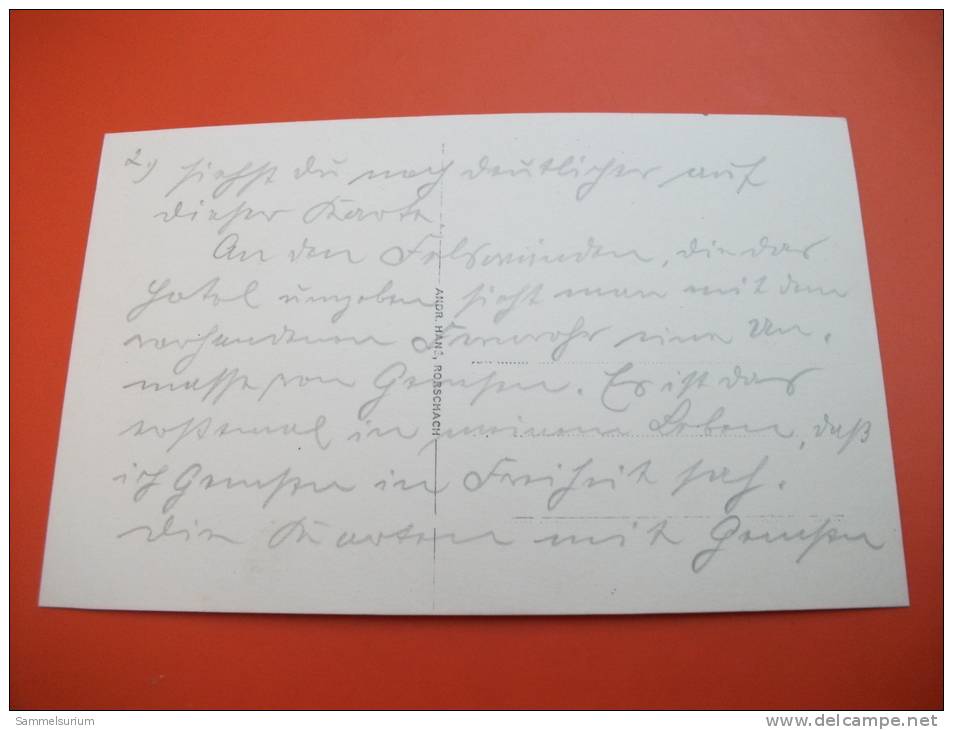 2.) siehst du noch deutlicher auf
dieser Karte
An den Felswänden, die das
Hotel umgeben sieht man mit dem
vorhandenen Fernrohr eine Un-
masse von Gemsen. Es ist das
erstemal in meinem Leben, daß
ich Gemsen in Freiheit sah.
Die Karten mit Gemsen
ANDR. HANE, RORSCHACH
Sammelsurium
www.delcampe.net